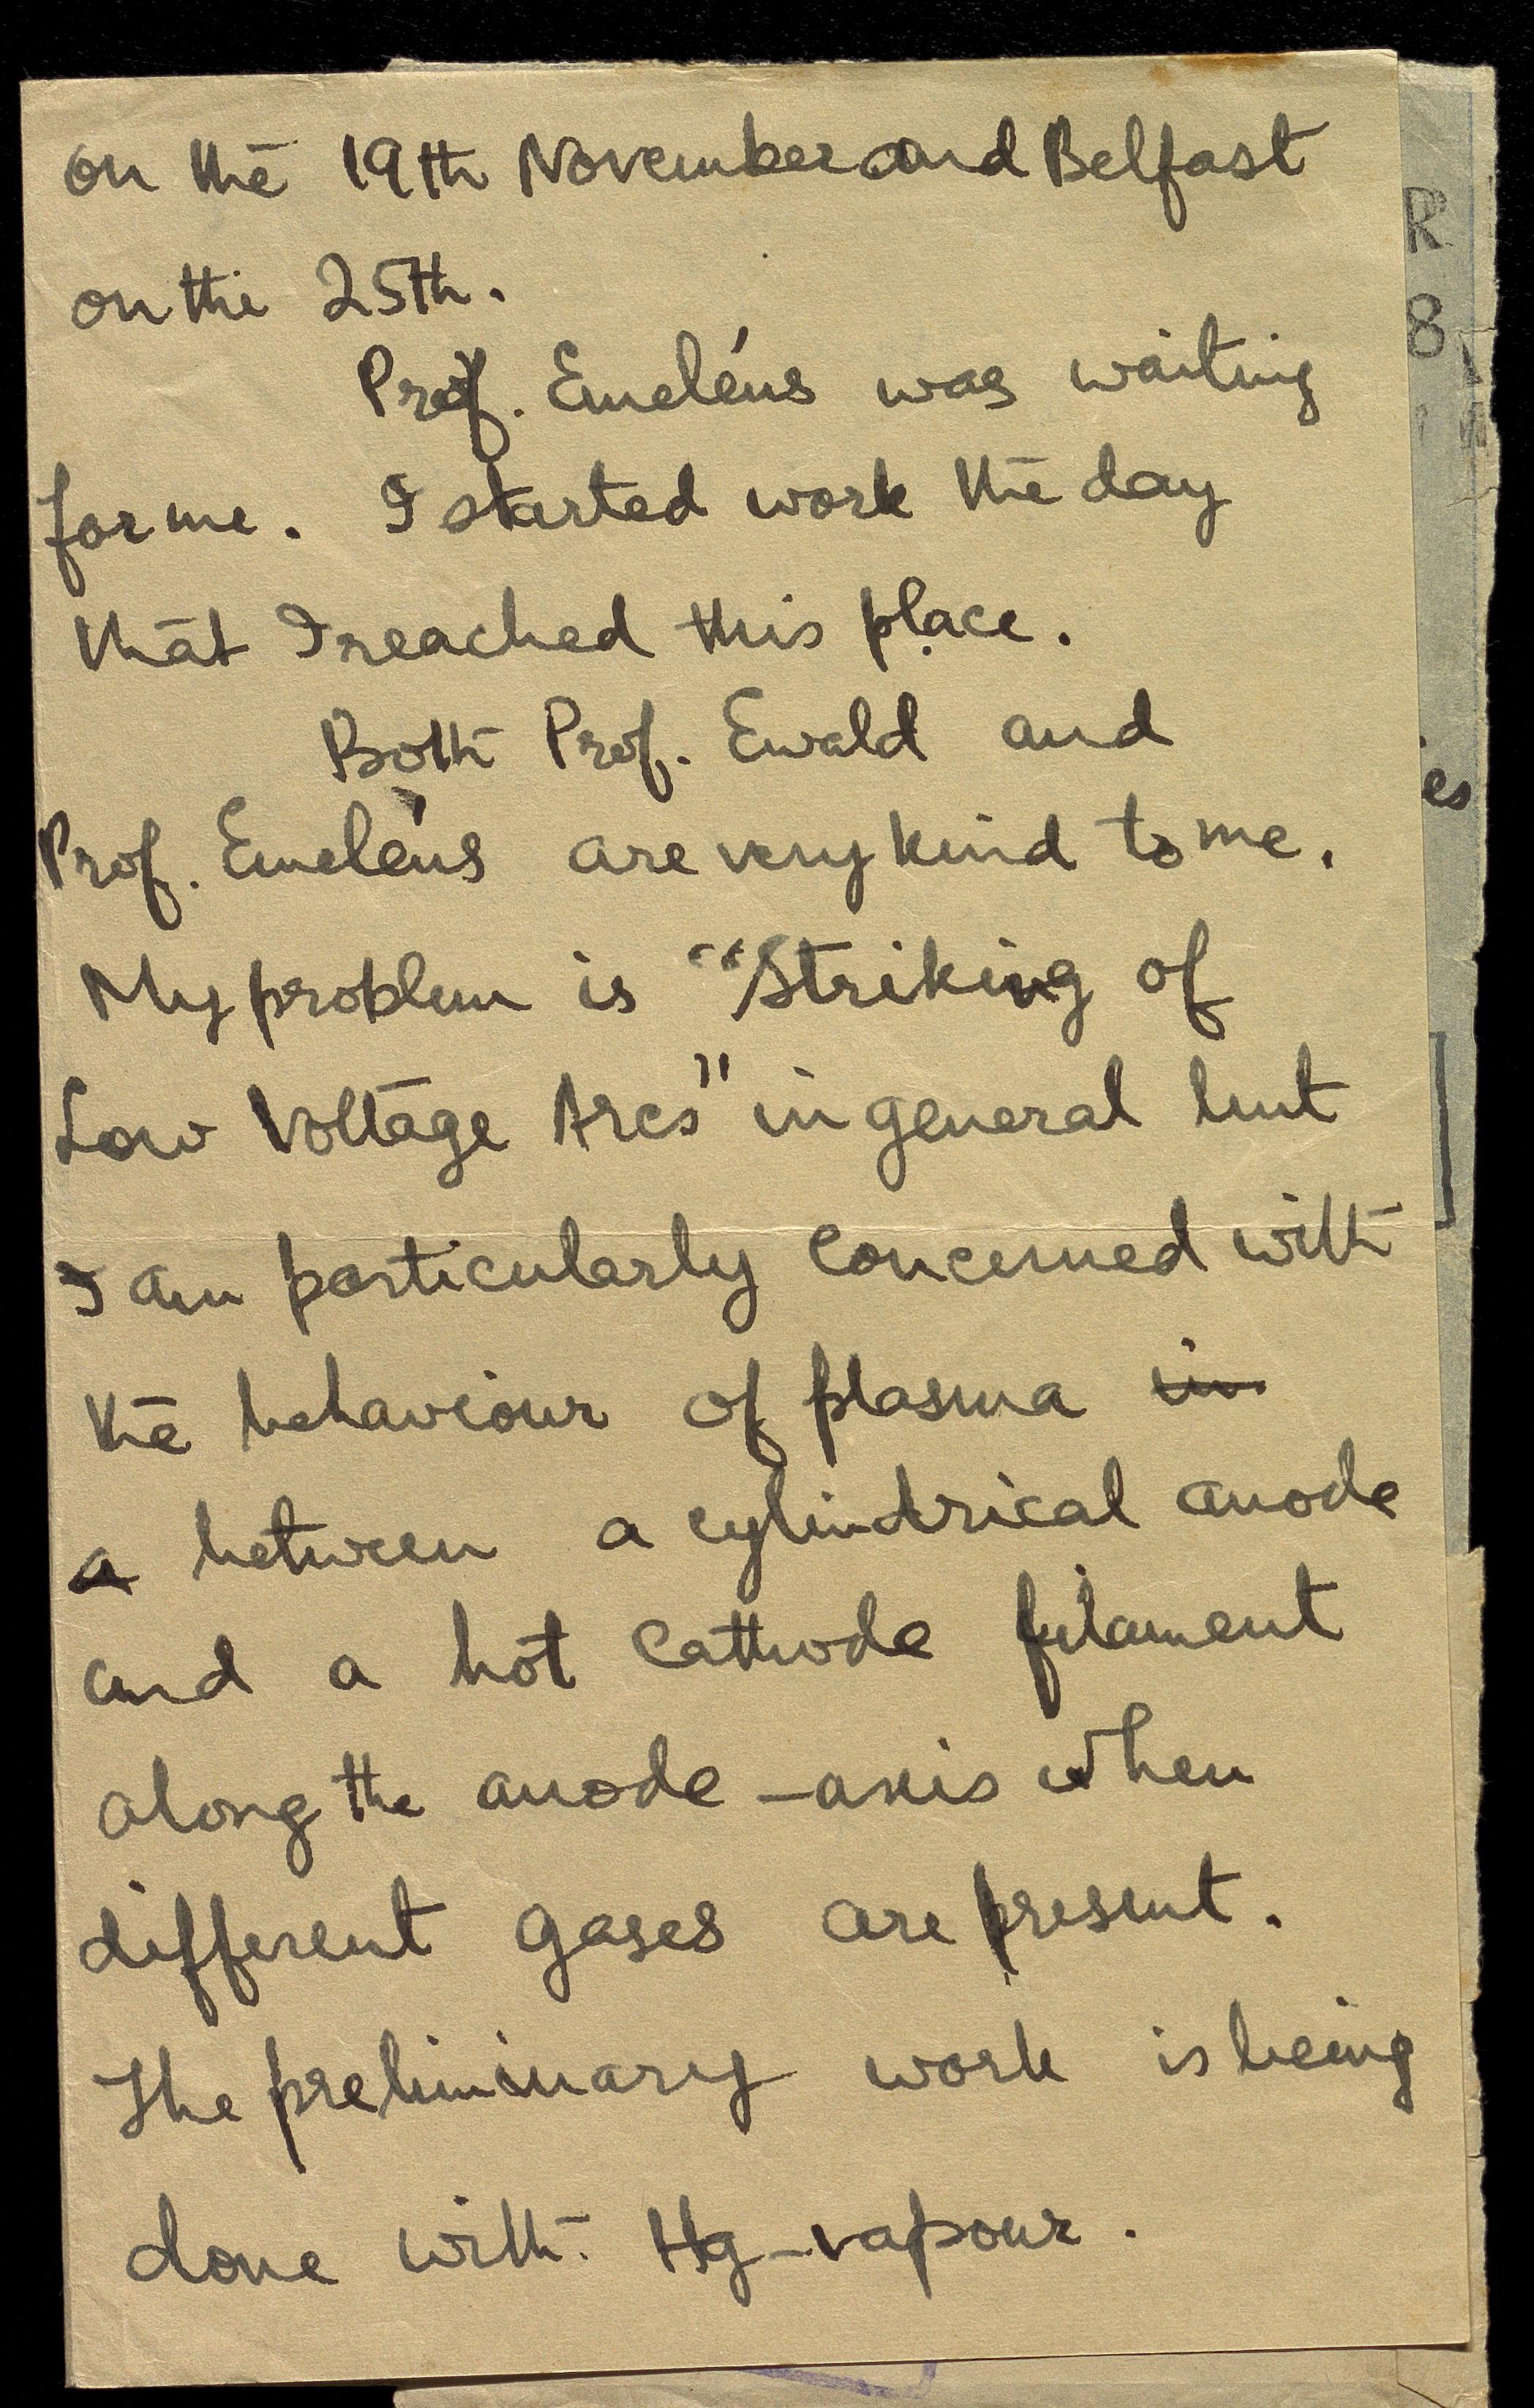 on the 19th November and Belfast
on the 25th.
Prof. Emeléus was waiting
for me. I started work the day
that I reached this place.
Both Prof. Ewald and
Prof. Emeléus are very kind to me.
My problem is "Striking of
Low Voltage Arcs" in general but
I am particularly concerned with
the behaviour of plasma in
a between a cylindrical anode
and a hot cathode filament
along the anode-axis when
different gases are present.
The preliminary work is being
done with Hg-vapour.
R
8
es